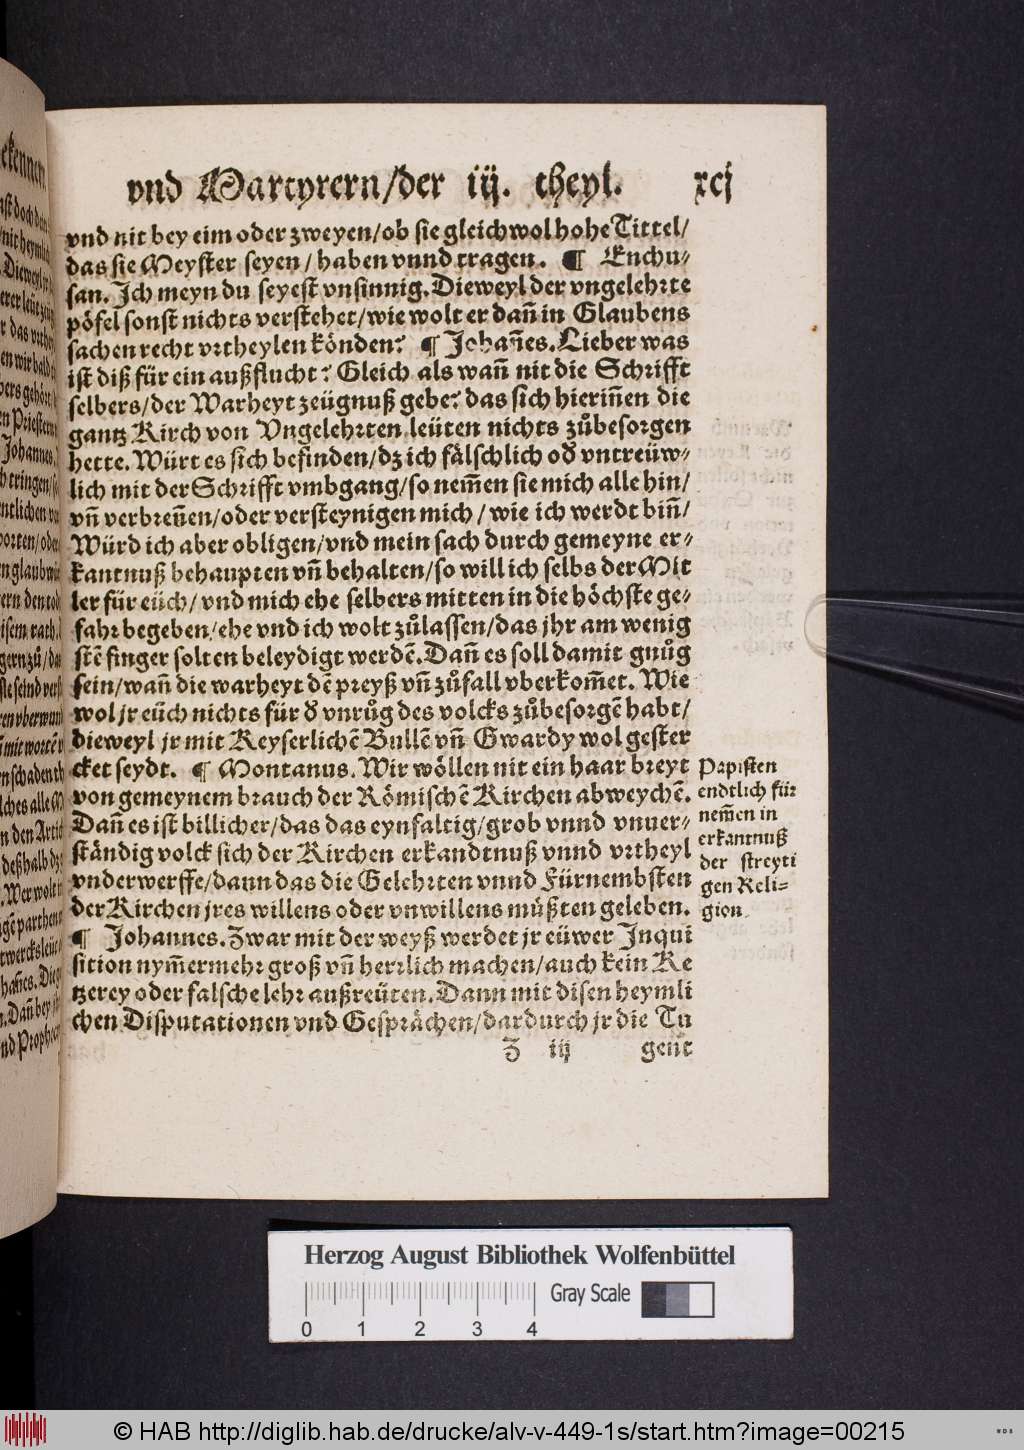 vnd Martyrern/der iij. theyl. xcj
vnd nit bey eim oder zweyen/ob sie gleichwol hohe Tittel/
das sie Meyster seyen/haben vnnd tragen. ¶ Enchu⸗
san. Ich meyn du seyest vnsinnig. Dieweyl der vngelehrte
pöfel sonst nichts verstehet/wie wolt er dañ in Glaubens
sachen recht vrtheylen könden? ¶ Johañes. Lieber was
ist diß für ein außflucht? Gleich als wañ nit die Schrifft
selbers/der Warheyt zeügnuß gebe? das sich hieriñen die
gantz Kirch von Vngelehrten leüten nichts zůbesorgen
hette. Würt es sich befinden/dz ich fälschlich oð vntreüw⸗
lich mit der Schrifft vmbgang/so nem̃en sie mich alle hin/
vñ verbreñen/oder versteynigen mich/wie ich werdt biñ/
Würd ich aber obligen/vnd mein sach durch gemeyne er⸗
kantnuß behaupten vñ behalten/so will ich selbs der Mit
ler für eüch/vnd mich ehe selbers mitten in die höchste ge⸗
fahr begeben/ehe vnd ich wolt zůlassen/das jhr am wenig
stẽ finger solten beleydigt werdẽ. Dañ es soll damit gnůg
sein/wañ die warheyt dẽ preyß vñ zůfall vberkom̃et. Wie
wol jr eüch nichts für ð vnrůg des volcks zůbesorgẽ habt/
dieweyl jr mit Keyserlichẽ Bullẽ vñ Gwardy wol gester
cket seydt. ¶ Montanus. Wir wöllen nit ein haar breyt
von gemeynem brauch der Römischẽ Kirchen abweychẽ.
Dañ es ist billicher/das das eynfaltig/grob vnnd vnuer⸗
ständig volck sich der Kirchen erkandtnuß vnnd vrtheyl
vnderwerffe/dann das die Gelehrten vnnd Fürnembsten
der Kirchen jres willens oder vnwillens müßten geleben.
¶ Johannes. Zwar mit der weyß werdet jr eüwer Inqui
sition nym̃ermehr groß vñ herrlich machen/auch kein Ke
tzerey oder falsche lehr außreüten. Dann mit disen heymli
chen Disputationen vnd Gesprächen/dardurch jr die Tu
Z iij gent
Papisten
endtlich für
nem̃en in
erkantnuß
der streyti
gen Reli⸗
gion.
Herzog August Bibliothek Wolfenbüttel
0 1 2 3 4
Gray Scale
© HAB http://diglib.hab.de/drucke/alv-v-449-1s/start.htm?image=00215